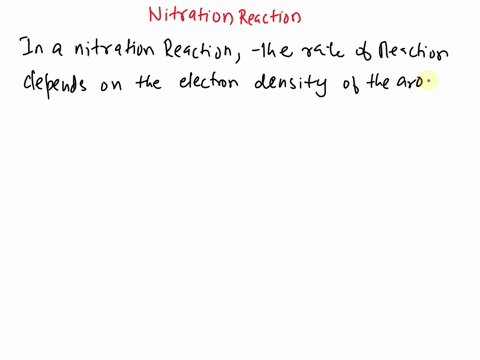 Nitration Reaction
In a nitration Reaction, -the rate of Reaction
depends on the electron density of the aro